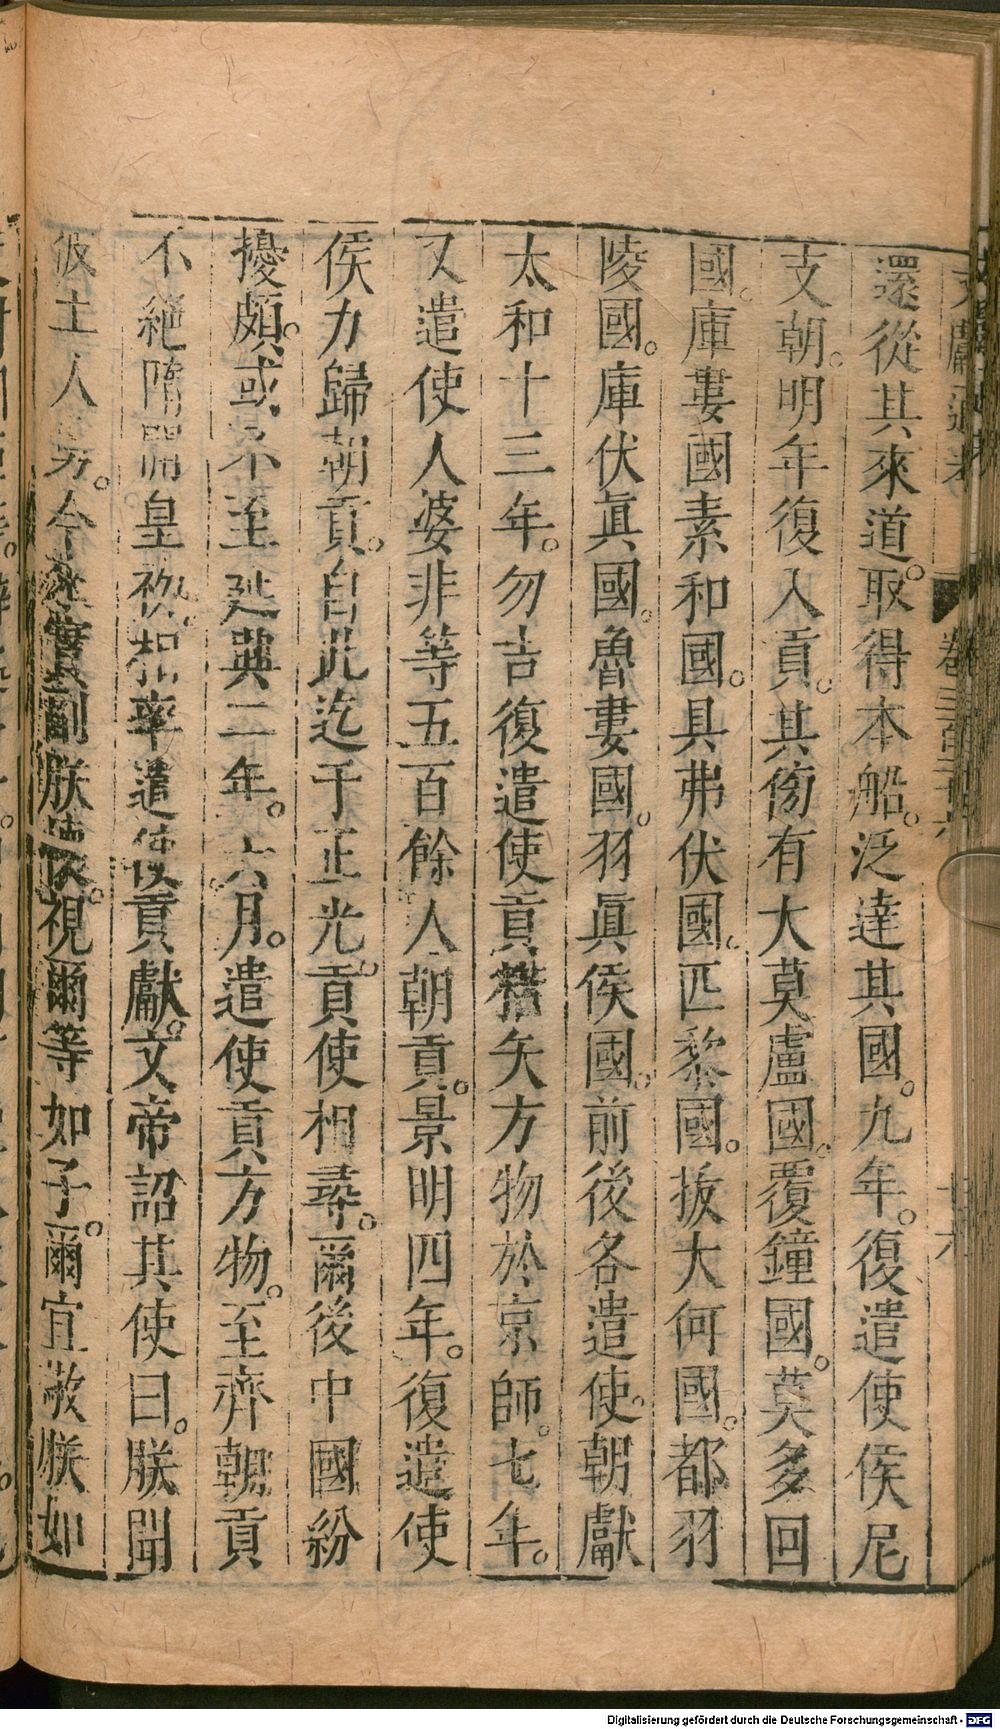 文獻通考 卷三百二十六 十六
還從其來道。取得本船。泛達其國。九年。復遣使侯尼
支朝。明年復入貢。其傍有大莫盧國。覆鐘國。莫多回
國。庫婁國素和國。具弗伏國。匹黎國。拔大何國。都羽
陵國。庫伏眞國。魯婁國。羽眞侯國。前後各遣使。朝獻
太和十三年。勿吉復遣使貢楛矢方物於京師。七年。
又遣使人婆非等五百餘人朝貢。景明四年。復遣使
侯力歸朝貢。自此迄于正光。貢使相尋。爾後中國紛
擾頗。或不至延興二年。六月。遣使貢方物。至齊朝貢
不絕隋開皇初。相率遣使貢獻。文帝詔其使曰。朕聞
彼土人勇。今來實副朕懷。視爾等如子。爾宜敬朕如
Digitalisierung gefördert durch die Deutsche Forschungsgemeinschaft - DFG